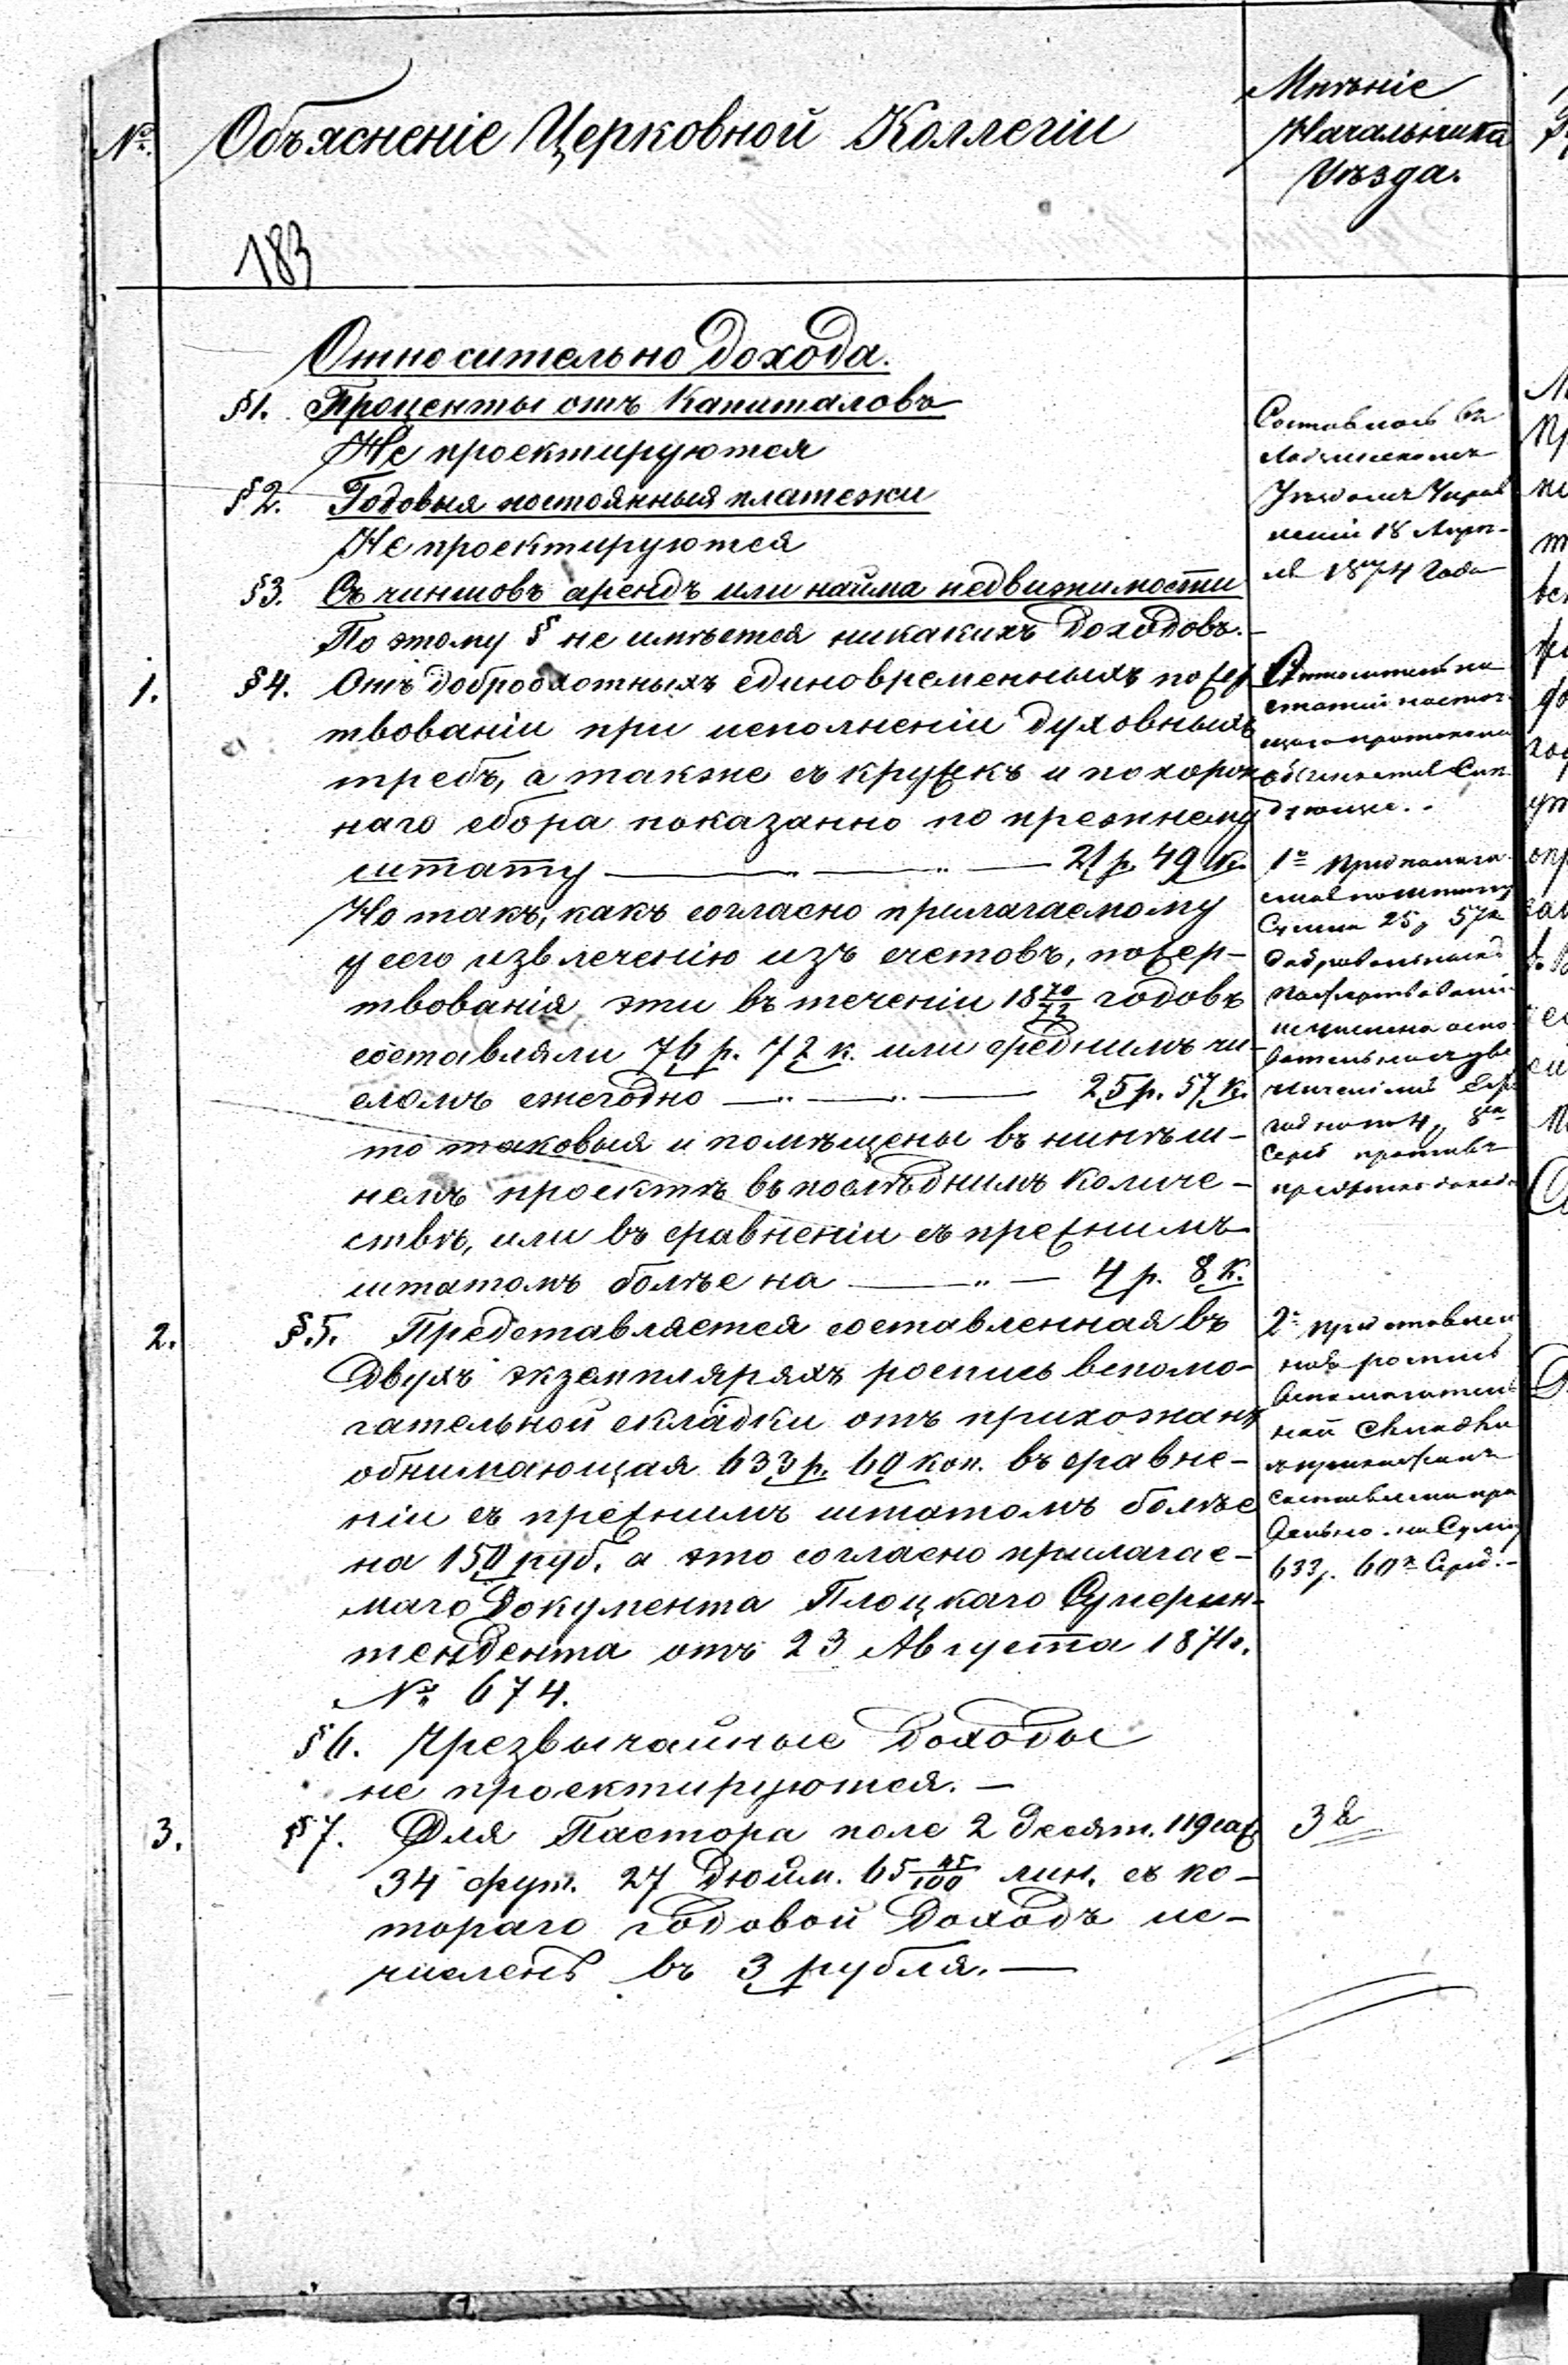 №.
Объясненіе Церковной Коллегіи
Мнѣніе
Начальника
Уѣзда.
183
Относительно дохода.
§1. Проценты отъ капиталовъ
Не проектируются
§2. Годовыя постоянныя платежи
Не проектируются
§3. Съ чиншовъ арендъ или найма недвижимости
По этому § не имѣется никакихъ доходовъ.—
1. §4. Отъ доброохотныхъ единовременныхъ пожер
твованіи при исполненіи духовныхъ
требъ, а также съ кружекъ и похорон
наго сбора показанно по прежнему
штату — 21 р. 49 к.
Но такъ, какъ согласно прилагаемому
у сего извлеченію изъ счетовъ, пожер-
твованія эти въ теченіи 18 70/72 годовъ
составляли 76 р. 72 к. или среднимъ чи-
сломъ ежегодно — 25 р. 57 к.
то таковыя и помѣщены въ нинѣш-
немъ проектѣ въ послѣднимъ количе-
ствѣ, или въ сравненіи съ прежнимъ
штатомъ болѣе на — 4 р. 8 к.
2. §.5. Представляется составленная въ
двухъ экземплярахъ роспись вспомо-
гательной складки отъ прихожанъ
обнимающая 633 р. 60 коп. въ сравне-
ніи съ прежнимъ штатомъ болѣе
на 150 руб. а это согласно прилагае-
маго документа Плоцкаго Суперин-
тендента отъ 23 Августа 187 г.
№ 674.
§6. Чрезвычайные доходы
не проектируются.—
3. §7. Для Пастора поле 2 десят. 119 саж
34 фут. 27 дюйм. 65 45/100 лин. съ ко-
тораго годовой доходъ ис-
численъ въ 3 рубля.—
Составлось въ
Уѣздномъ Управ
леніи 18 Апрѣ-
ля 1874 года
Относительно
статій настоя-
щаго протокола
1е
Сумма 25 р 57 к
пожертвованій
исчислена осно-
вательно
4 р 8 к
Сереб противъ
прежняго дохода
2е
роспись
вспомогатель
ной складки
прихожанъ
составлена пра
вильно на Сумму
633 р. 60 к Сереб.—
3е